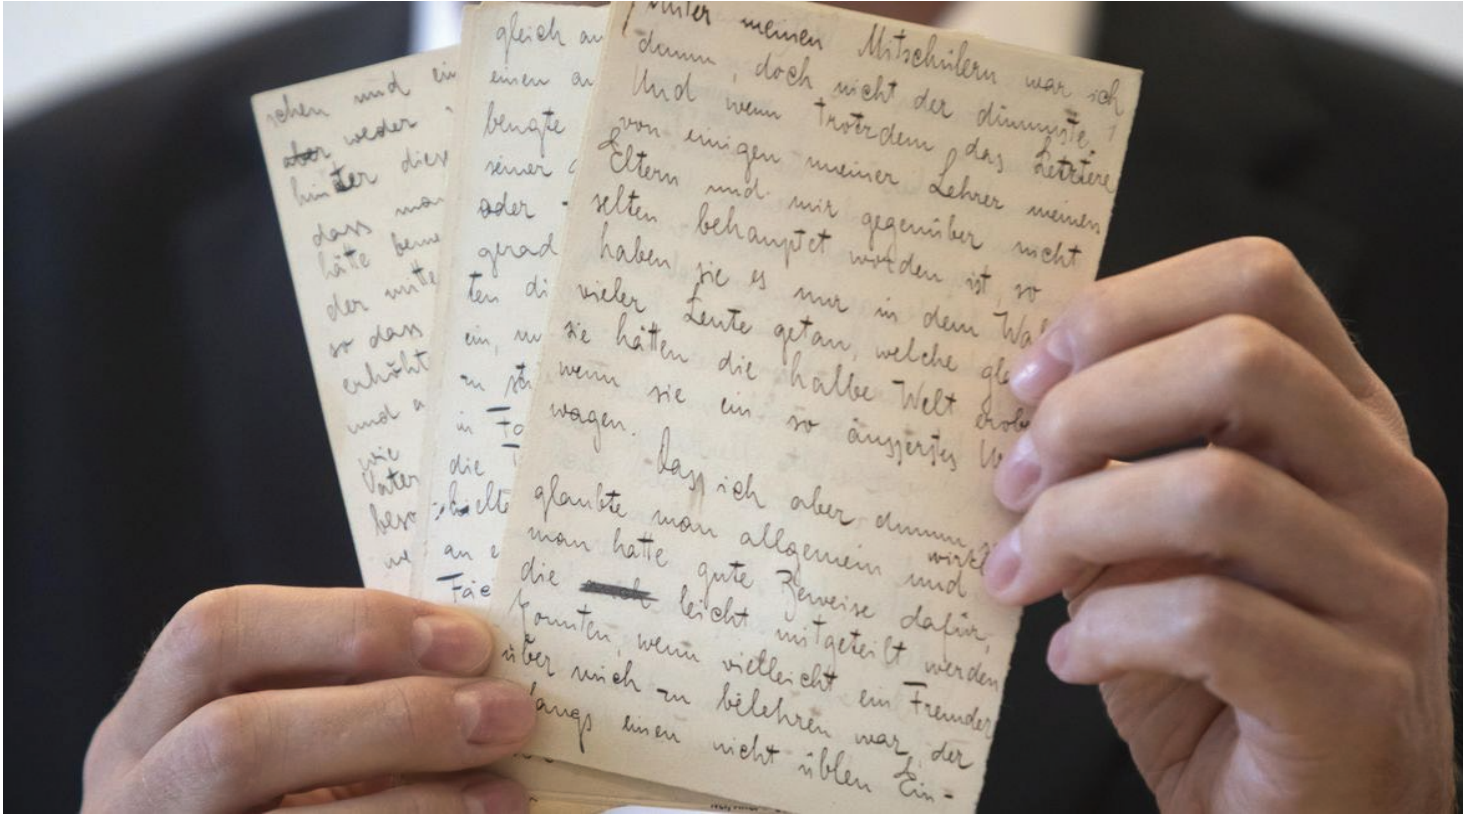 schen und ein
weder
hinter diese
dass man
hätte beme
der mitte
so dass
erhöht
und a
wie
Vater
beso
we
gleich au
einen an
bengte
seiner
oder
gerad
ten di
ein, un
zu
in Fo
die
hielte
an e
Fäe
Unter meinen Mitschülern war ich
dumm, doch nicht der dümmste.
Und wenn trotzdem das Letztere
von einigen meiner Lehrer meinen
Eltern und mir gegenüber nicht
selten behauptet worden ist, so
haben sie es nur in dem Wa
vieler Leute getan, welche gla
sie hätten die halbe Welt erobe
wenn sie ein so äusserstes U
wagen.
Dass ich aber dumm
glaubte man allgemein und wirkl
man hatte gute Beweise dafür,
die leicht mitgeteilt werden
konnten, wenn vielleicht ein Fremder
über mich zu belehren war, der
fangs einen nicht üblen Ein-